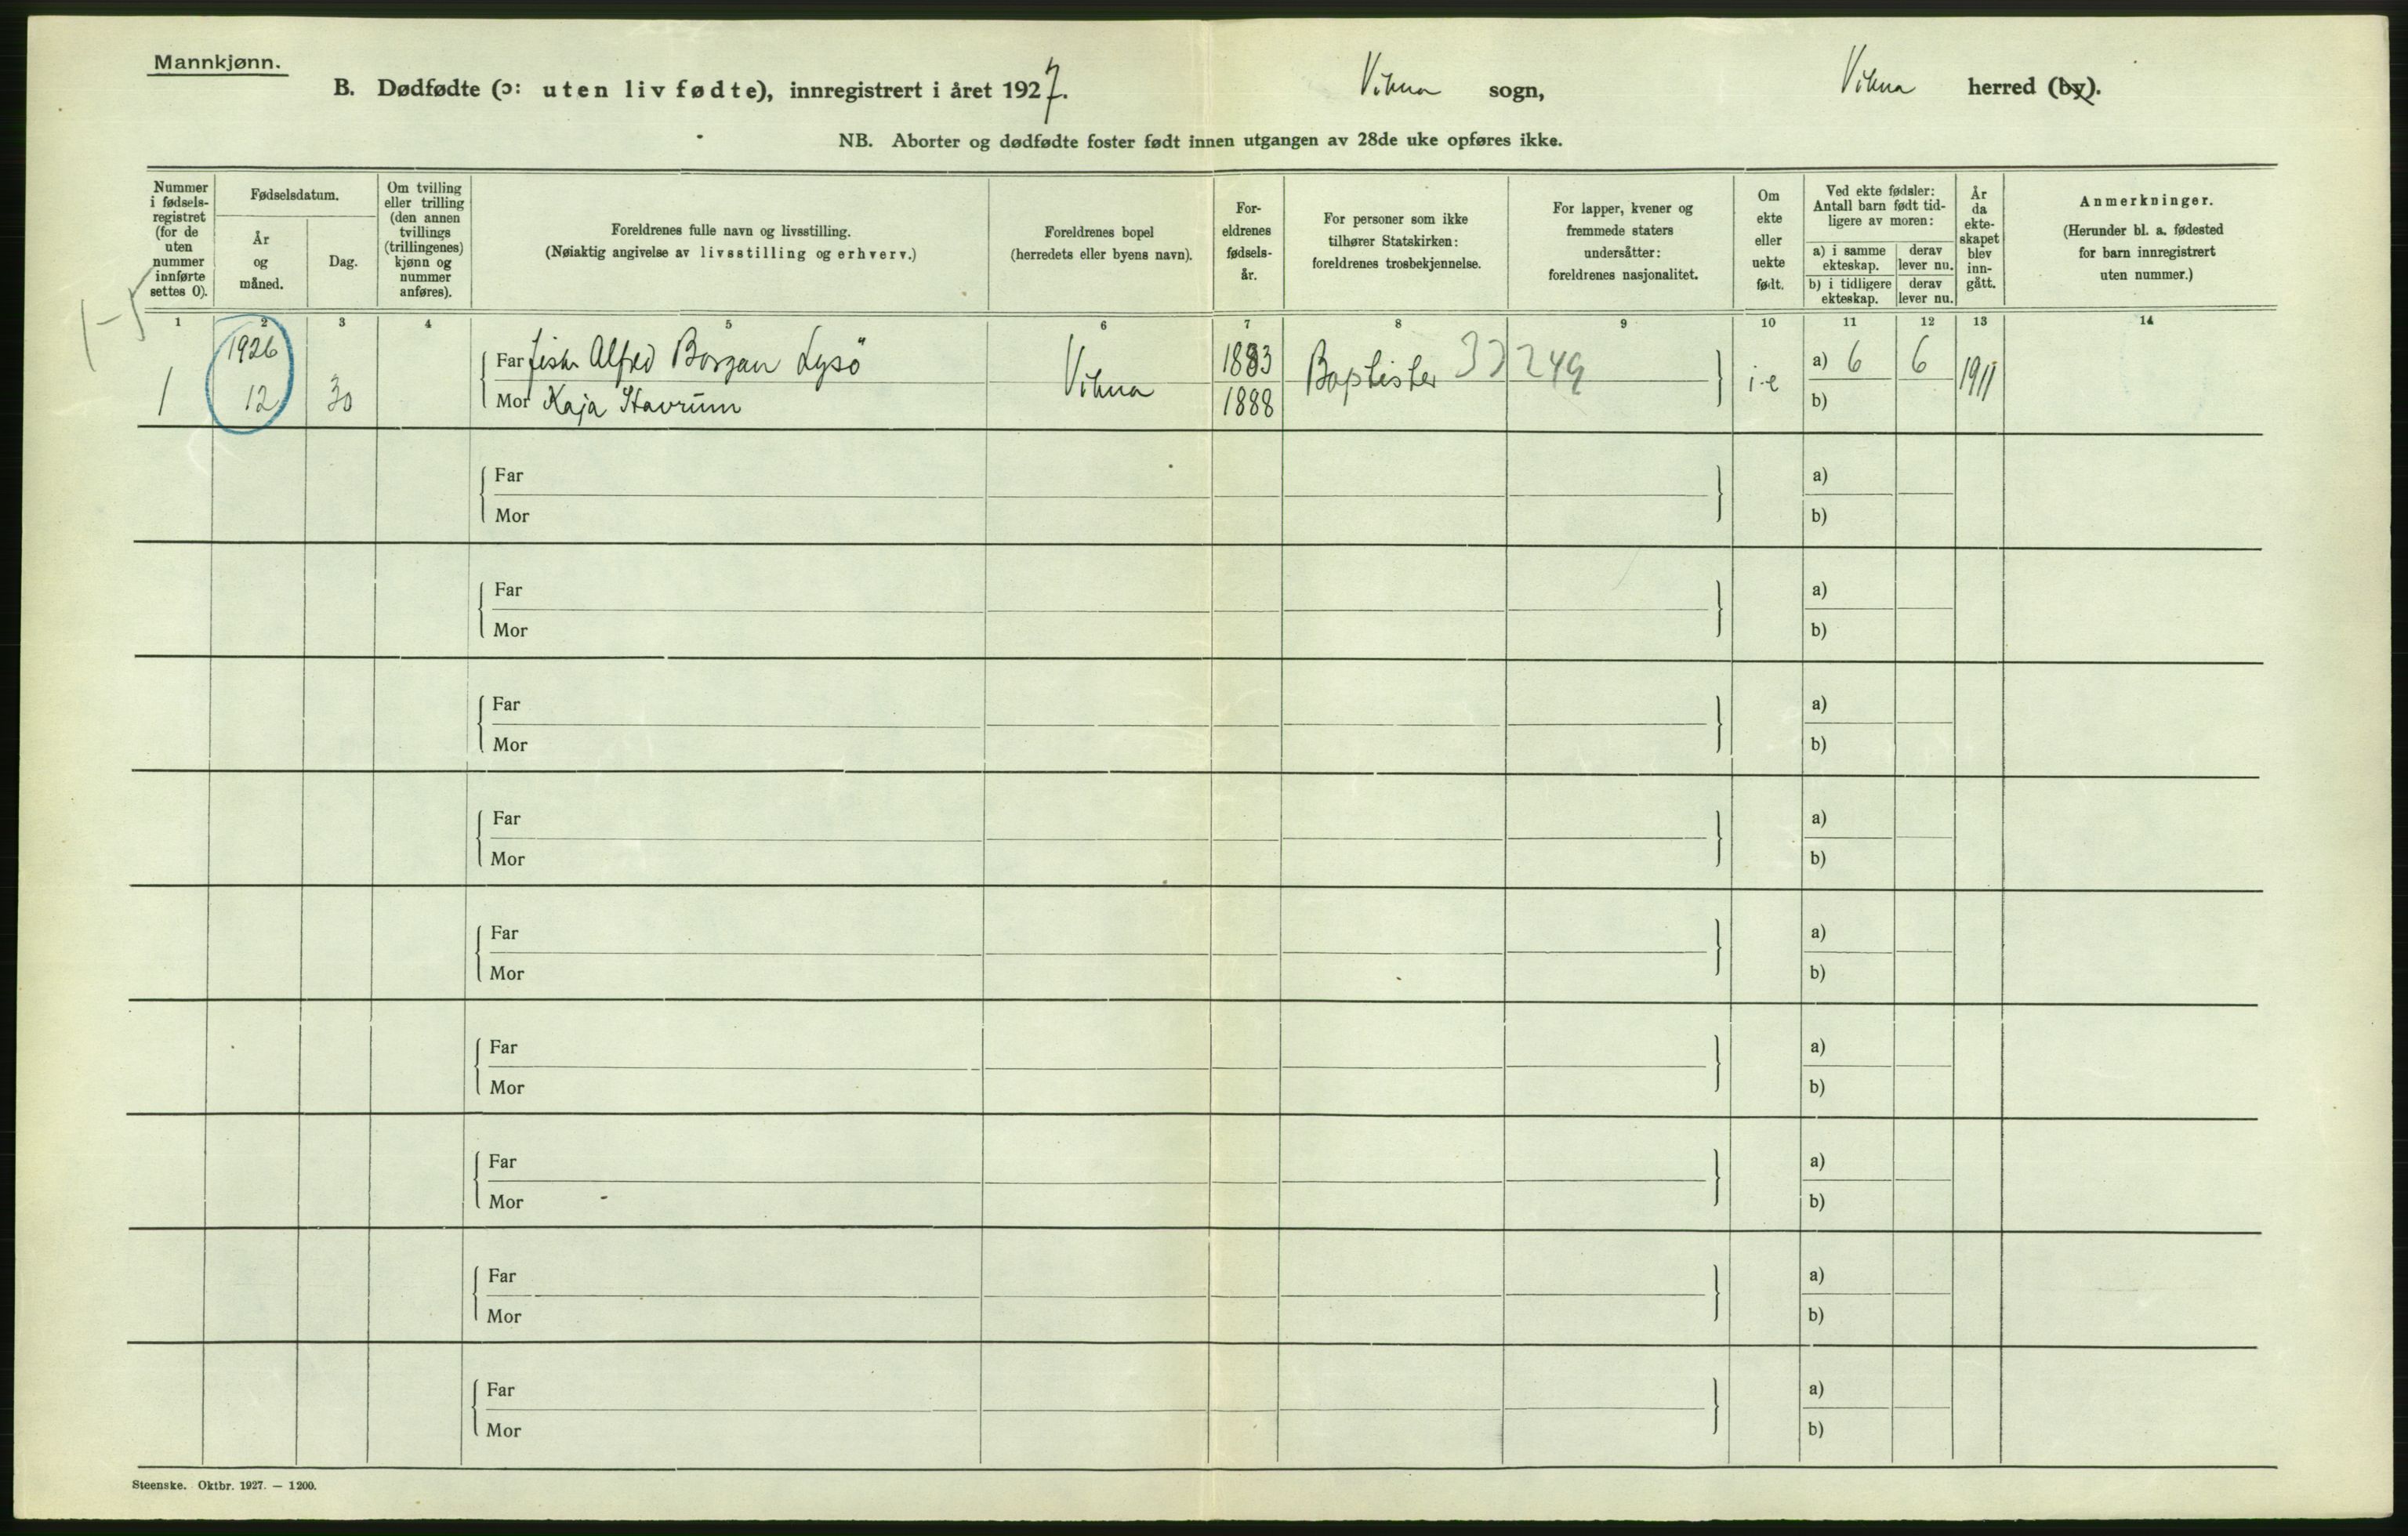 Mannkjønn.
B. Dødfødte (ɔ: uten liv fødte), innregistrert i året 1927. Vikna sogn, Vikna herred (by).
NB. Aborter og dødfødte foster født innen utgangen av 28de uke opføres ikke.
Nummer
i fødsels-
registret
(for de
uten
nummer
innførte
settes 0).
Fødselsdatum.
År
og
måned.
Dag.
Om tvilling
eller trilling
(den annen
tvillings
(trillingenes)
kjønn og
nummer
anføres).
Foreldrenes fulle navn og livsstilling.
(Nøiaktig angivelse av livsstilling og erhverv.)
Foreldrenes bopel
(herredets eller byens navn).
For-
eldrenes
fødsels-
år.
For personer som ikke
tilhører Statskirken:
foreldrenes trosbekjennelse.
For lapper, kvener og
fremmede staters
undersåtter:
foreldrenes nasjonalitet.
Om
ekte
eller
uekte
født.
Ved ekte fødsler:
Antall barn født tid-
ligere av moren:
a) i samme
ekteskap.
derav
lever nu.
b) i tidligere
ekteskap.
derav
lever nu.
År
da
ekte-
skapet
blev
inn-
gått.
Anmerkninger.
(Herunder bl. a. fødested
for barn innregistrert
uten nummer.)
1 2 3 4 5 6 7 8 9 10 11 12 13 14
1-5
1926
Far fisker Alfred Borgan Lysö
1883
a) 6 6
1 12 30
Vikna
Baptister 33 249
i-e
1911
Mor Kaja Stavrum
1888
b)
Far a)
Mor b)
Far a)
Mor b)
Far a)
Mor b)
Far a)
Mor b)
Far a)
Mor b)
Far a)
Mor b)
Far a)
Mor b)
Far a)
Mor b)
Far a)
Mor b)
Steenske. Oktbr. 1927. — 1200.